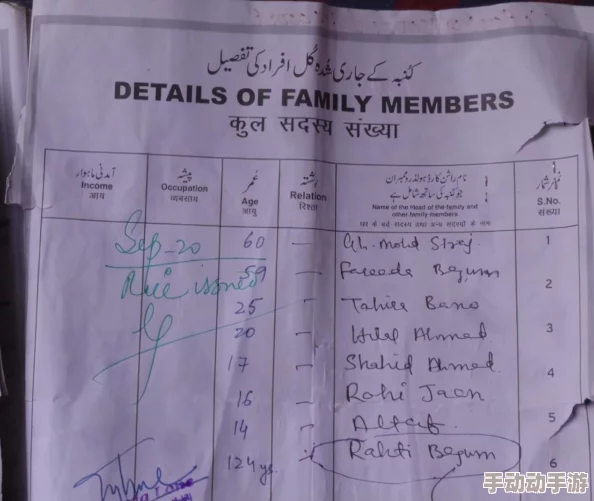 کنبہ کے جاری شدہ کل افراد کی تفصیل
DETAILS OF FAMILY MEMBERS
कुल सदस्य संख्या
آمدنی ماہوار
Income
आय
پیشہ
Occupation
व्यवसाय
عمر
Age
आयु
رشتہ
Relation
रिश्ता
نام راشن کارڈ ہولڈر و ممبران
جو کنبہ کی ساتھ شامل ہے
Name of the Head of the family and
other family members
घर के बड़े सदस्य तथा अन्य सदस्यों के नाम
نمبر شمار
S.No.
संख्या
Sep-20
Rice issued
60 — Gh. Mohd 1
59 Fareeda Begum 2
25 Tahira Bano
20 Hilal Ahmad 3
17 Shahid Ahmad 4
16 Rohi Jaan
14 Altaf 5
124 ys. Rahti Begum 6
手动动手游